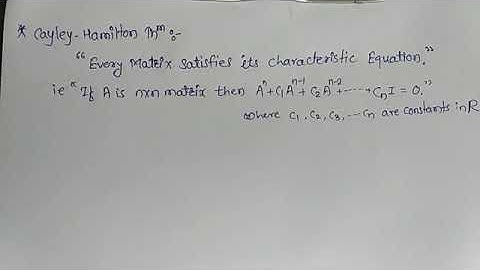 * Cayley-Hamilton Thm :-
"Every Matrix satisfies its characteristic Equation."
ie "If A is nxn matrix then Aⁿ+C₁Aⁿ⁻¹+C₂Aⁿ⁻²+-----+CₙI=0."
where C₁,C₂,C₃,---Cₙ are constants in R